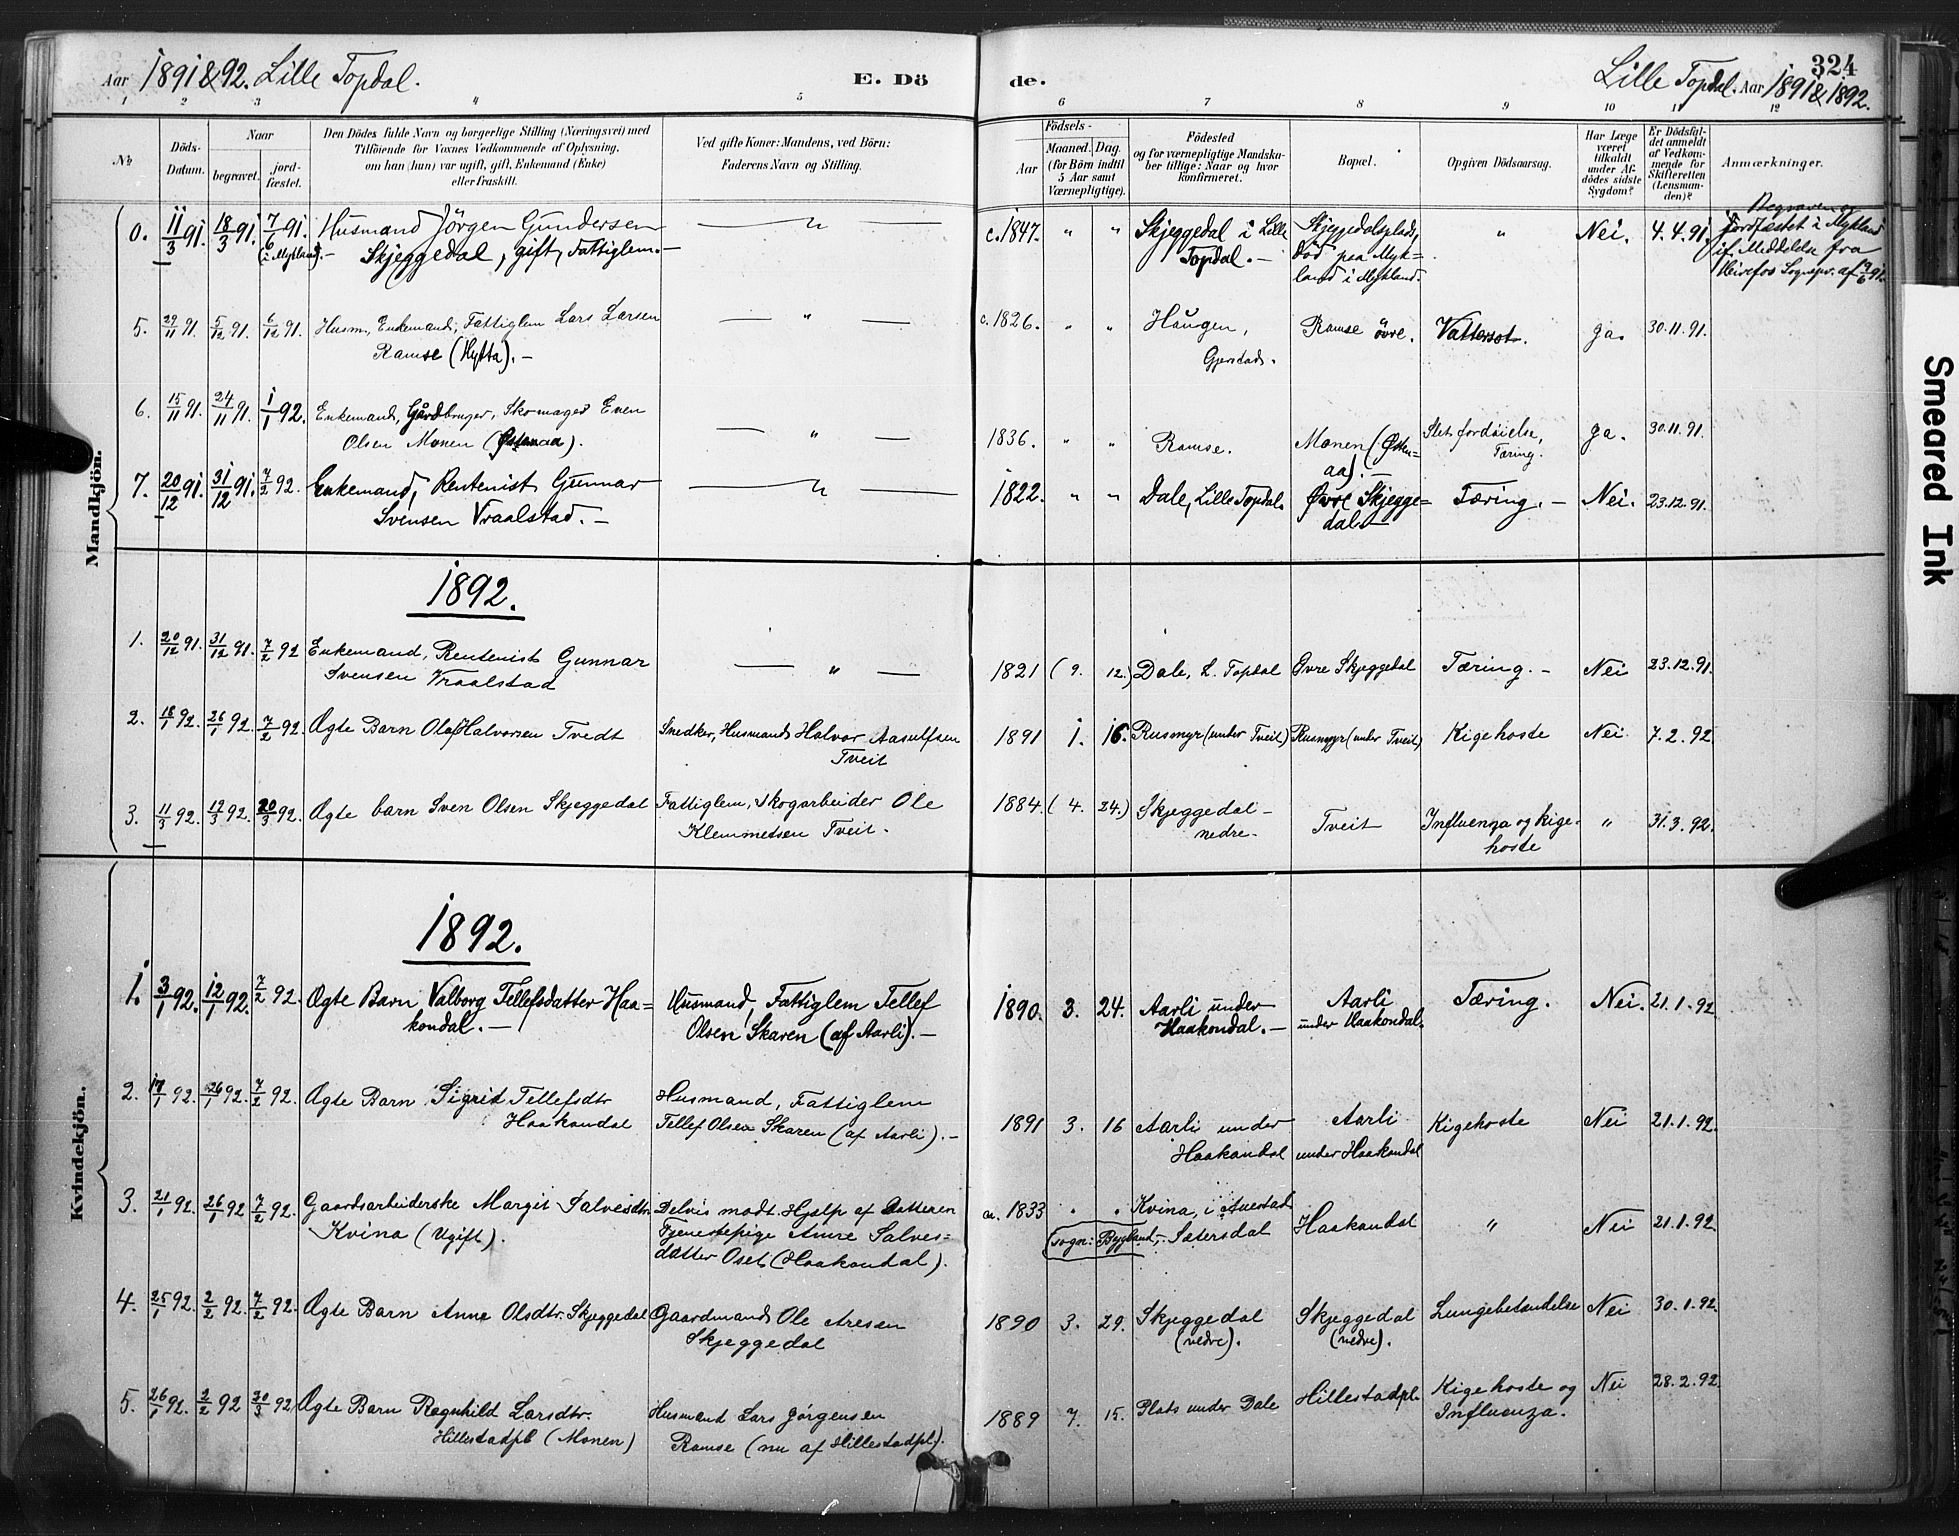 Aar 1891 & 92. Lille Topdal.
E. Dö
de.
Lille Topdal. Aar 1891 & 1892.
324
1 2 3 4 5 6 7 8 9 10 11 12
No
Döds-
Datum.
Naar
begravet.
jord-
fæstet.
Den Dödes fulde Navn og borgerlige Stilling (Næringsvei) med
Tilföiende for Voxnes Vedkommende af Oplysning,
om han (hun) var ugift, gift, Enkemand (Enke)
eller fraskilt.
Ved gifte Koner: Mandens, ved Börn:
Faderens Navn og Stilling.
Födsels-
Aar
Maaned. Dag.
(for Börn indtil
5 Aar samt
Værnepligtige).
Födested
og for værnepligtige Mandska-
ber tillige: Naar og hvor
konfirmeret.
Bopæl.
Opgiven Dödsaarsag.
Har Læge
været
tilkaldt
under Af-
dödes sidste
Sygdom?
Er Dödsfal-
det anmeldt
af Vedkom-
mende for
Skifteretten
(Lensman-
den)?
Anmærkninger.
Mandkjön.
0. 11/3 91. 18/3 91. 7/6 91. (i Mykland). Husmand Jörgen Gundersen
Skjeggedal, gift, Fattiglem. —
— " — c. 1847. " " Skjeggedal i Lille
Topdal. —
Skjeggedalsplads,
död paa Myk-
land i Mykland.
" Nei. 4.4.91.
Begraven og
Jordfæstet i Mykland
if. Meddelse fra
Hirefos Sognepr. af 9/6 91.
5. 29/11 91. 5/12 91. 6/12 91. Husm, Enkemand, Fattiglem Lars Larsen
Ramse (Hytta). —
— " — c. 1826. " " Haugen,
Gjerstads.
Ramse övre. Vattersot. ja. 30.11.91.
6. 15/11 91. 24/11 91. 1/1 92. Enkemand, Gårdbruger, Skomager Even
Olsen Monen (Østenaa).
— " — 1836. " " Ramse. Monen (Østen-
aa). —
Slet fordøielse,
Tæring.
ja. 30.11.91.
7. 20/12 91. 31/12 91. 7/2 92. Enkemand, Rentenist Gunnar
Svensen Vraalstad. —
— " — 1822. " " Dale, Lille Topdal. Øvre Skjegge-
dal. —
Tæring. — Nei. 23.12.91.
1892.
1. 20/12 91. 31/12 91. 7/2 92 Enkemand, Rentenist Gunnar
Svensen Vraalstad
— " — 1821 (9. 12.) Dale, L. Topdal Øvre Skjeggedal Tæring. — Nei 23.12.91.
2. 18/1 92. 26/1 92. 7/2 92. Ægte Barn Olaf Halvorsen Tvedt
Snedker, Husmand Halvor Aasulfsen
Tveit
1891 1. 16. Rusmyr (under Tveit) Rusmyr (under Tveit) Kigehoste Nei 7.2.92.
3. 11/3 92. 19/3 92. 20/3 92. Ægte barn Sven Olsen Skjeggedal
Fattiglem, Skogarbeider Ole
Klemmetsen Tveit.
1884. (4. 24.) Skjeggedal -
nedre.
Tveit Influenza og kige-
hoste
" 31.3.92.
Kvindekjön.
1892.
1. 3/1 92. 12/1 92. 7/2 92. Ægte Barn Valborg Tellefsdatter Haa-
kondal. —
Husmand, Fattiglem Tellef
Olsen Skaren (af Aarli). —
1890. 3. 24. Aarli under
Haakondal. —
Aarli
under Haakondal.
Tæring. Nei. 21.1.92
2. 17/1 92. 26/1 92. 7/2 92. Ægte Barn Sigrid Tellefsdtr
Haakondal
Husmand, Fattiglem
Tellef Olsen Skaren (af Aarli). —
1891 3. 16 Aarli under
Haakondal
Aarli
under Haakondal
Kigehoste Nei 21.1.92.
3. 21/1 92. 26/1 92 7/2 92. Gaardsarbeiderske Margit Salvesdtr
Kvina (Ugift).
Delvis modt. Hjælp af Datteren
Tjenestepige Anne Salves-
datter Oset (Haakondal).
ca. 1833 " " Kvina, i
(sogn: Bygland, Sætersdal
Haakondal " Nei 21.1.92
4. 25/1 92. 2/2 92. 7/2 92. Ægte Barn Anne Olsdtr. Skjeggedal
Gaardmand Ole Aresen
Skjeggedal
1890 3. 29. Skjeggedal
(nedre).
Skjeggedal
(nedre).
Lungebetændelse Nei 30.1.92.
5. 26/1 92. 2/2 92 20/3 92 Ægte Barn Ragnhild Larsdtr.
Hillestadpl (Monen)
Husmand Lars Jørgensen
Ramse (nu af Hillestadpl).
1889 7. 15. Plats under Dale Hillestadpl. Kigehoste og
Influenza.
Nei 28.2.92.
Smeared Ink